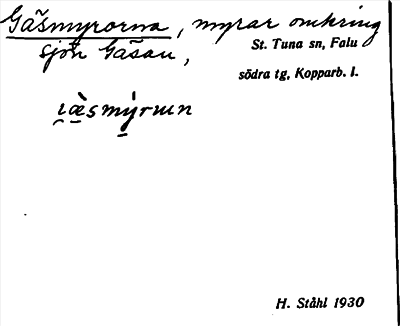 Gåsmyrorna, myrar omkring
sjön Gåsau,
St. Tuna sn, Falu
södra tg, Kopparb. l.
H. Ståhl 1930